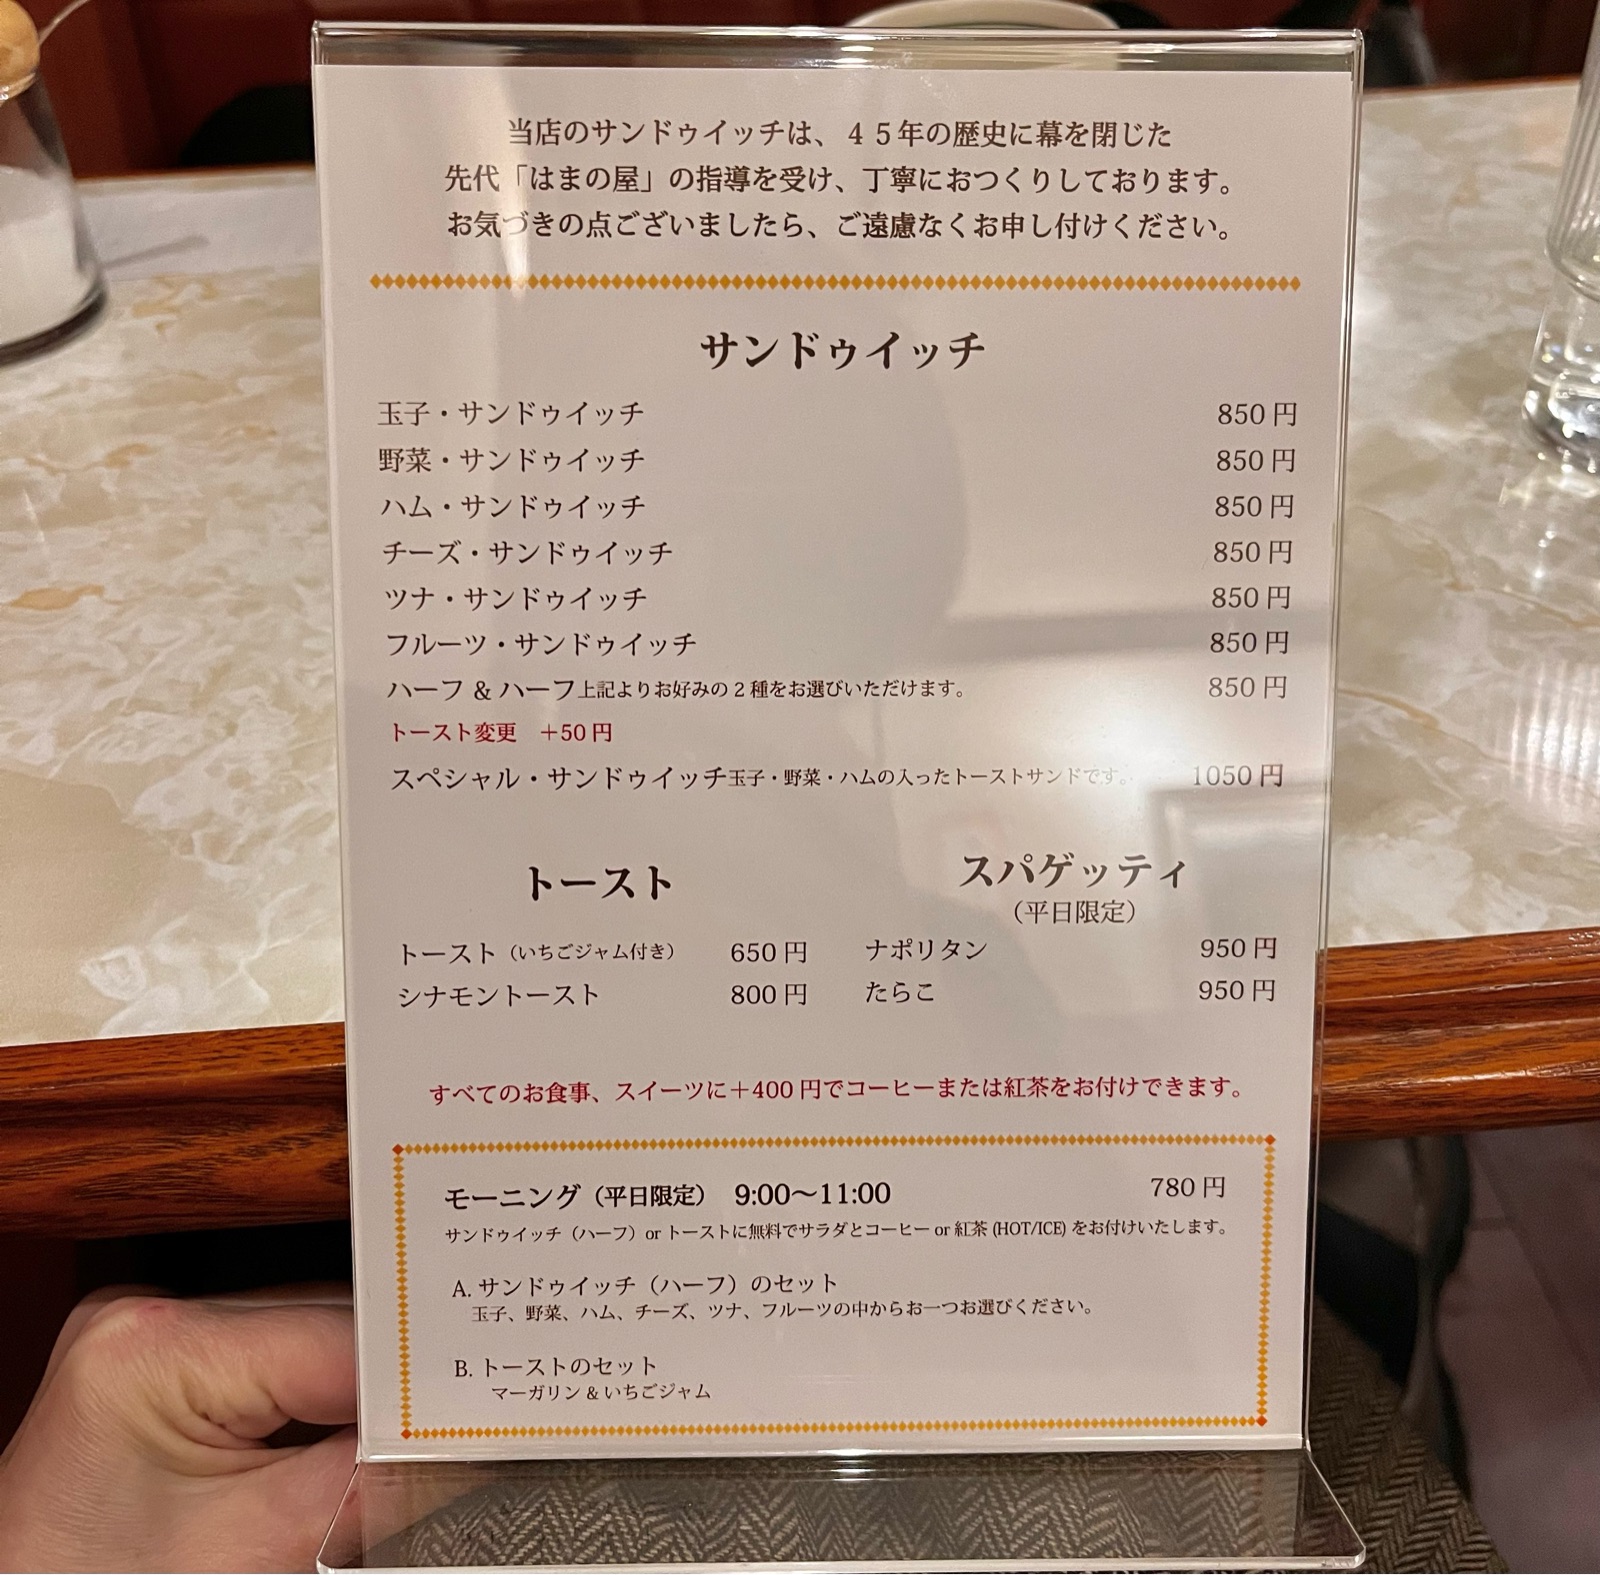 当店のサンドゥイッチは、４５年の歴史に幕を閉じた
先代「はまの屋」の指導を受け、丁寧におつくりしております。
お気づきの点ございましたら、ご遠慮なくお申し付けください。
サンドゥイッチ
玉子・サンドゥイッチ 850円
野菜・サンドゥイッチ 850円
ハム・サンドゥイッチ 850円
チーズ・サンドゥイッチ 850円
ツナ・サンドゥイッチ 850円
フルーツ・サンドゥイッチ 850円
ハーフ & ハーフ上記よりお好みの2種をお選びいただけます。 850円
トースト変更 ＋50円
スペシャル・サンドゥイッチ玉子・野菜・ハムの入ったトーストサンドです。 1050円
トースト
トースト（いちごジャム付き） 650円
シナモントースト 800円
スパゲッティ
（平日限定）
ナポリタン 950円
たらこ 950円
すべてのお食事、スイーツに＋400円でコーヒーまたは紅茶をお付けできます。
モーニング（平日限定） 9:00〜11:00 780円
サンドゥイッチ（ハーフ）or トーストに無料でサラダとコーヒー or 紅茶 (HOT/ICE) をお付けいたします。
A. サンドゥイッチ（ハーフ）のセット
玉子、野菜、ハム、チーズ、ツナ、フルーツの中からお一つお選びください。
B. トーストのセット
マーガリン & いちごジャム